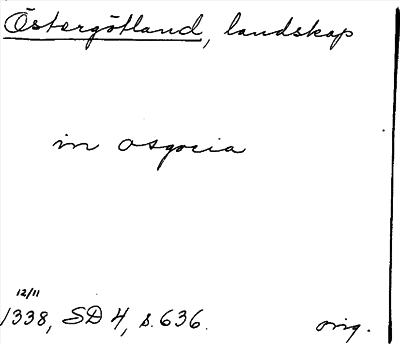 Östergötland, landskap
in osgocia
12/11
1338, SD 4, s. 636.
orig.